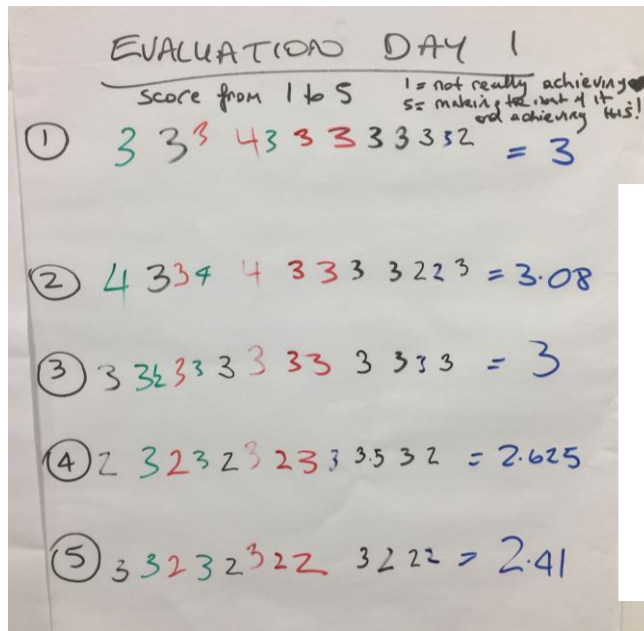 EVALUATION DAY 1
score from 1 to 5
1 = not really achieving
5 = making the most of it
and achieving this!
① 3 3 3 4 3 3 3 3 3 3 3 2 = 3
② 4 3 3 4 4 3 3 3 3 2 2 3 = 3.08
③ 3 3½ 3 3 3 3 3 3 3 3 3 3 = 3
④ 2 3 2 3 2 3 2 3 3 3.5 3 2 = 2.625
⑤ 3 3 2 3 2 3 2 2 3 2 2 2 = 2.41